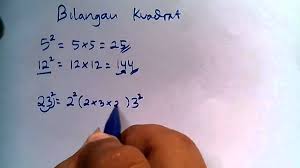 Bilangan Kuadrat
5² = 5 × 5 = 25
12² = 12 × 12 = 144
23² = 2² (2 × 3 × 2 ) 3²